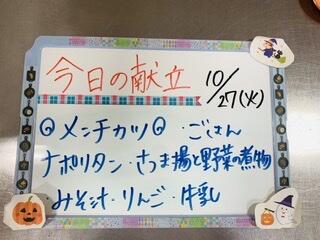 今日の献立
10/27(火)
◎メンチカツ◎ ・ごはん
ナポリタン・さつま揚と野菜の煮物
・みそ汁・りんご・牛乳